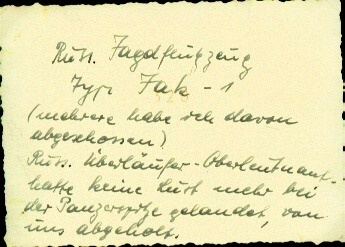 Russ. Jagdflugzeug
Typ Jak - 1
(mehrere habe ich davon
abgeschossen)
Russ. Überläufer - Oberleutnant -
hatte keine Lust mehr bei
der Panzerspitze gelandet, von
uns abgeholt.